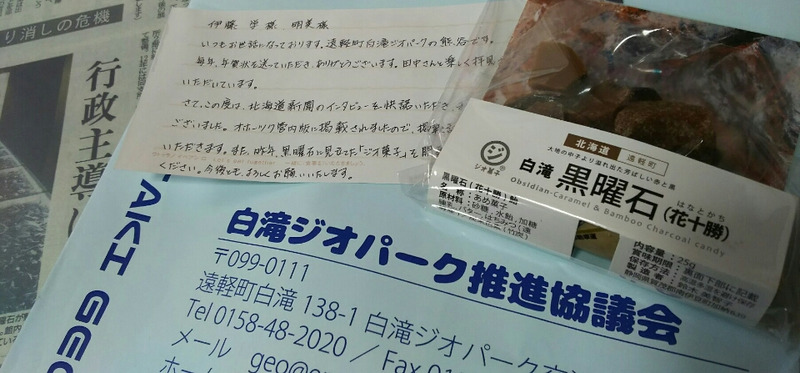 り消しの危機
行政主導
伊藤 学様 明美様
いつもお世話になっております。遠軽町白滝ジオパークの熊谷です。
毎年、年賀状を送っていただき、ありがとうございます。田中さんと楽しく拝見
いただいています。
さて、この度は、北海道新聞のインタビューを快諾いただき、
ございました。オホーツク管内版に掲載されましたので、
いただきます。また、昨年、黒曜石に見立てた「ジオ菓子」を
ください。今後とも、よろしくお願いいたします。
ジオ菓子
北海道 遠軽町
大地の中より溢れ出た芳ばしい赤と黒
白滝 黒曜石(花十勝)
はなとかち
Obsidian-Caramel & Bamboo Charcoal candy
黒曜石(花十勝)飴
名称:あめ菓子
原材料:砂糖、水飴、加糖
練乳、バター、はちみつ
(竹炭)
内容量:25g
賞味期限:裏面下部に記載
保存方法:直射
製造者:
白滝ジオパーク推進協議会
〒099-0111
遠軽町白滝 138-1 白滝ジオパーク交
Tel 0158-48-2020 / Fax 01
メール geo@
ホー
TAKI GEO